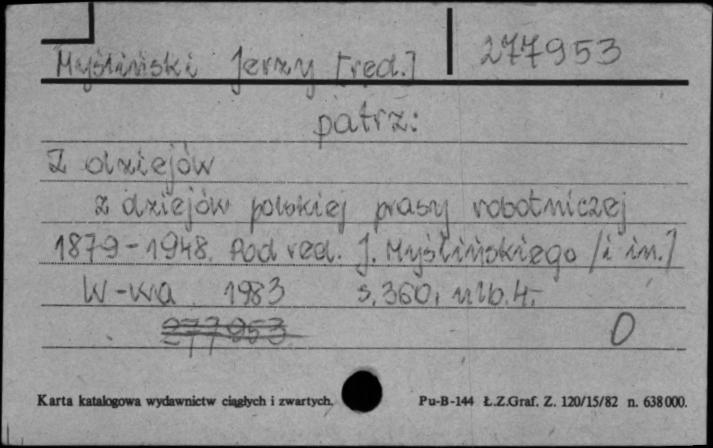 Myśliński Jerzy [red.] 277953
patrz:
Z dziejów
Z dziejów polskiej prasy robotniczej
1879-1948. Pod red. J. Myślińskiego /i in./
W-wa 1983 s. 360, nlb. 4.
277953 O
Karta katalogowa wydawnictw ciągłych i zwartych. Pu-B-144 Ł.Z.Graf. Z. 120/15/82 n. 638000.